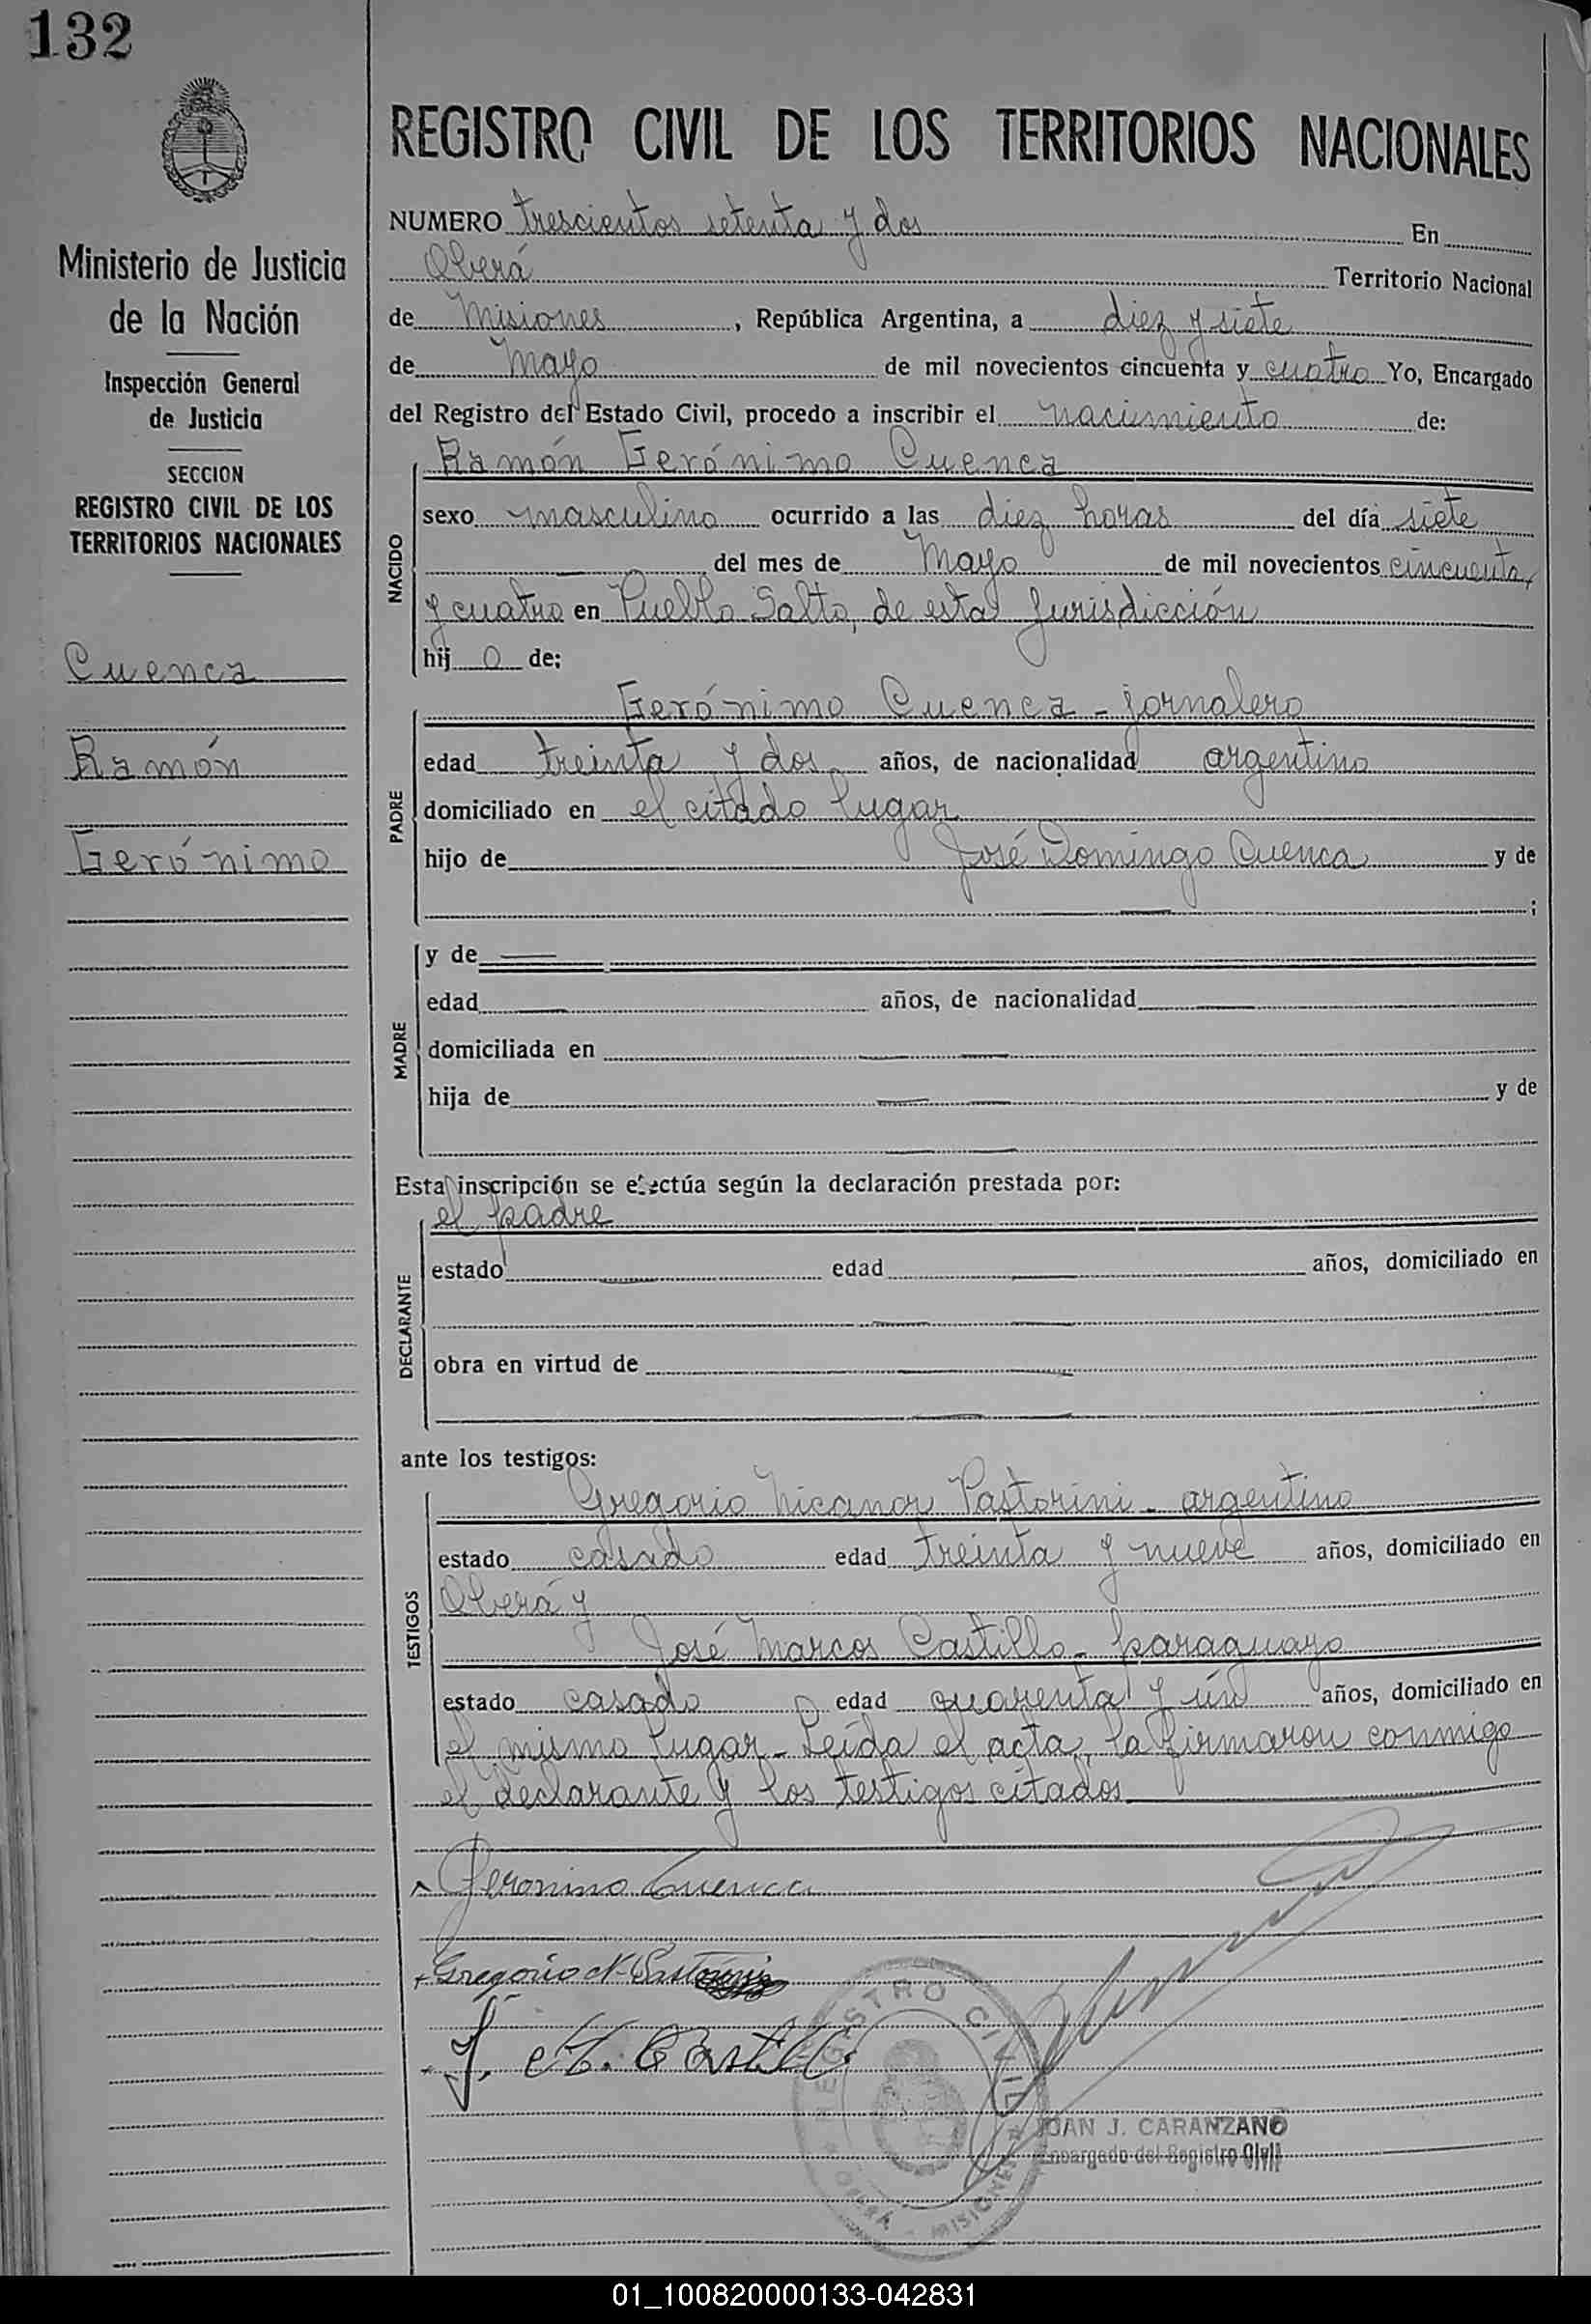 132
Ministerio de Justicia
de la Nación
Inspección General
de Justicia
SECCION
REGISTRO CIVIL DE LOS
TERRITORIOS NACIONALES
Cuenca
Ramón
Gerónimo
REGISTRO CIVIL DE LOS TERRITORIOS NACIONALES
NUMERO trescientos setenta y dos En
Oberá Territorio Nacional
de Misiones, República Argentina, a diez y siete
de Mayo de mil novecientos cincuenta y cuatro Yo, Encargado
del Registro del Estado Civil, procedo a inscribir el nacimiento de:
Ramón Gerónimo Cuenca
NACIDO
sexo masculino ocurrido a las diez horas del día siete
del mes de Mayo de mil novecientos cincuenta
y cuatro en Pueblo Salto, de esta Jurisdicción
hij o de:
Gerónimo Cuenca - jornalero
PADRE
edad treinta y dos años, de nacionalidad argentino
domiciliado en el citado lugar
hijo de José Domingo Cuenca y de
;
MADRE
y de
edad años, de nacionalidad
domiciliada en
hija de y de
Esta inscripción se efectúa según la declaración prestada por:
el padre
DECLARANTE
estado edad años, domiciliado en
obra en virtud de
ante los testigos:
Gregorio Nicanor Pastorini - argentino
TESTIGOS
estado casado edad treinta y nueve años, domiciliado en
Oberá y
José Marcos Castillo - paraguayo
estado casado edad cuarenta y un años, domiciliado en
el mismo lugar - Leída el acta, la firmaron conmigo
el declarante y los testigos citados
Geronimo Cuenca
Gregorio N. Pastorini
J. M. Castillo
REGISTRO CIVIL
OBERÁ - MISIONES
JUAN J. CARANZANO
Encargado del Registro Civil
01_100820000133-042831